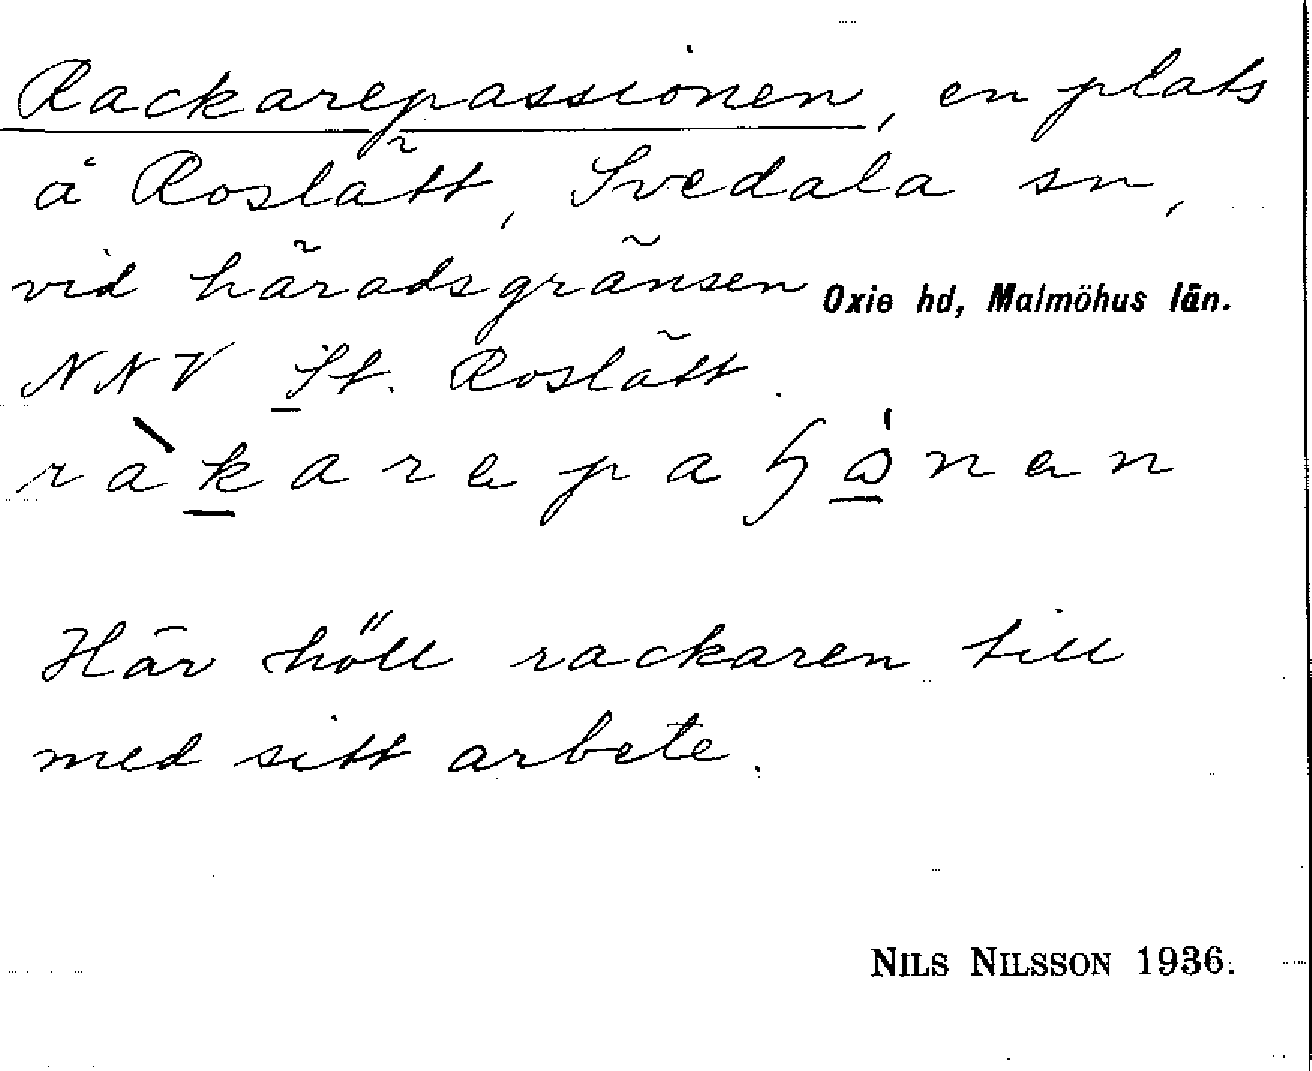 Rackarepassionen, en plats
å Roslätt, Svedala sn,
vid häradsgränsen Oxie hd, Malmöhus län.
NNV St. Roslätt.
Här höll rackaren till
med sitt arbete.
NILS NILSSON 1936.